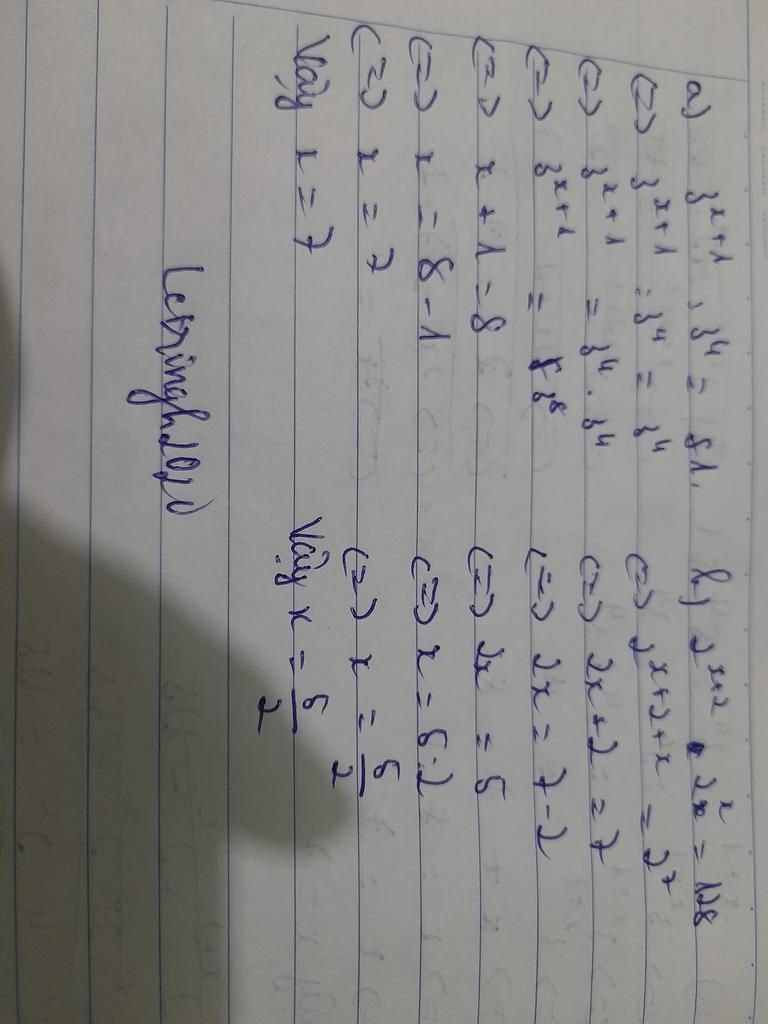 a) 3^{x+1} : 3^4 = 81.
(=) 3^{x+1} : 3^4 = 3^4
(=) 3^{x+1} = 3^4 . 3^4
(=) 3^{x+1} = 3^8
(=) x + 1 = 8
(=) x = 8 - 1
(=) x = 7
Vậy x = 7
b) 2^{x+2} . 2^x = 128
(=) 2^{x+2+x} = 2^7
(=) 2x+2 = 7
(=) 2x = 7-2
(=) 2x = 5
(=) x = 5:2
(=) x = 5/2
Vậy x = 5/2